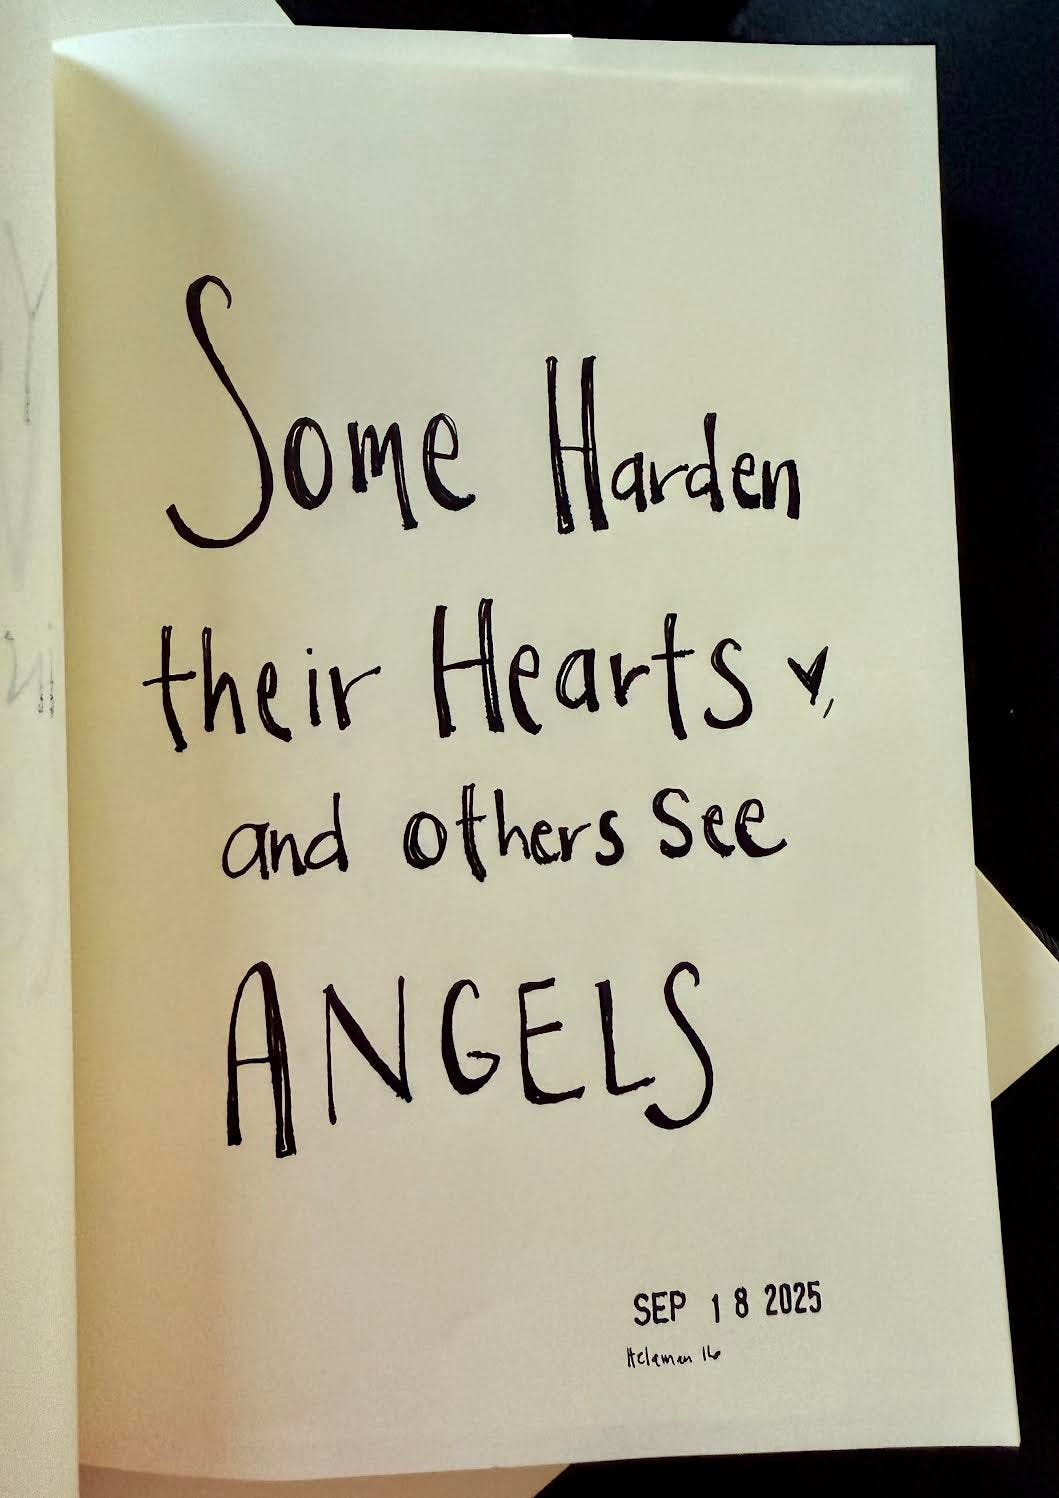 Some Harden
their Hearts ♥,
and others see
ANGELS
SEP 18 2025
Helaman 16